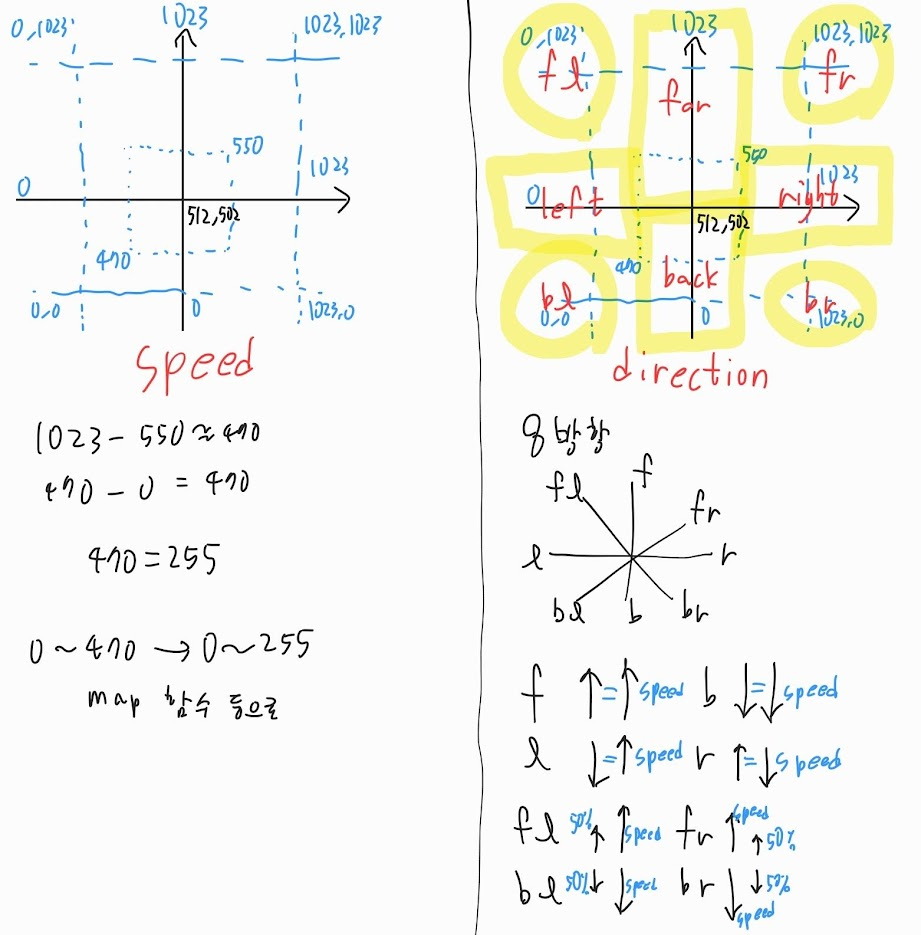 1023
0,1023
1023,1023
550
1023
0
512,502
470
0,0
0
1023,0
speed
1023 - 550 ≈ 470
470 - 0 = 470
470 = 255
0 ~ 470 → 0 ~ 255
map 함수 등으로
1023
0,1023
1023,1023
fl
far
fr
550
1023
0
left
right
512,502
470
back
bl
br
0,0
0
1023,0
direction
8 방향
f
fl
fr
l
r
bl
b
br
f ↑=↑ speed b ↓=↓ speed
l ↓=↑ speed r ↑=↓ speed
fl 50% ↑ ↑ speed fr ↑ speed ↑ 50%
bl 50% ↓ ↓ speed br ↓ speed ↓ 50%